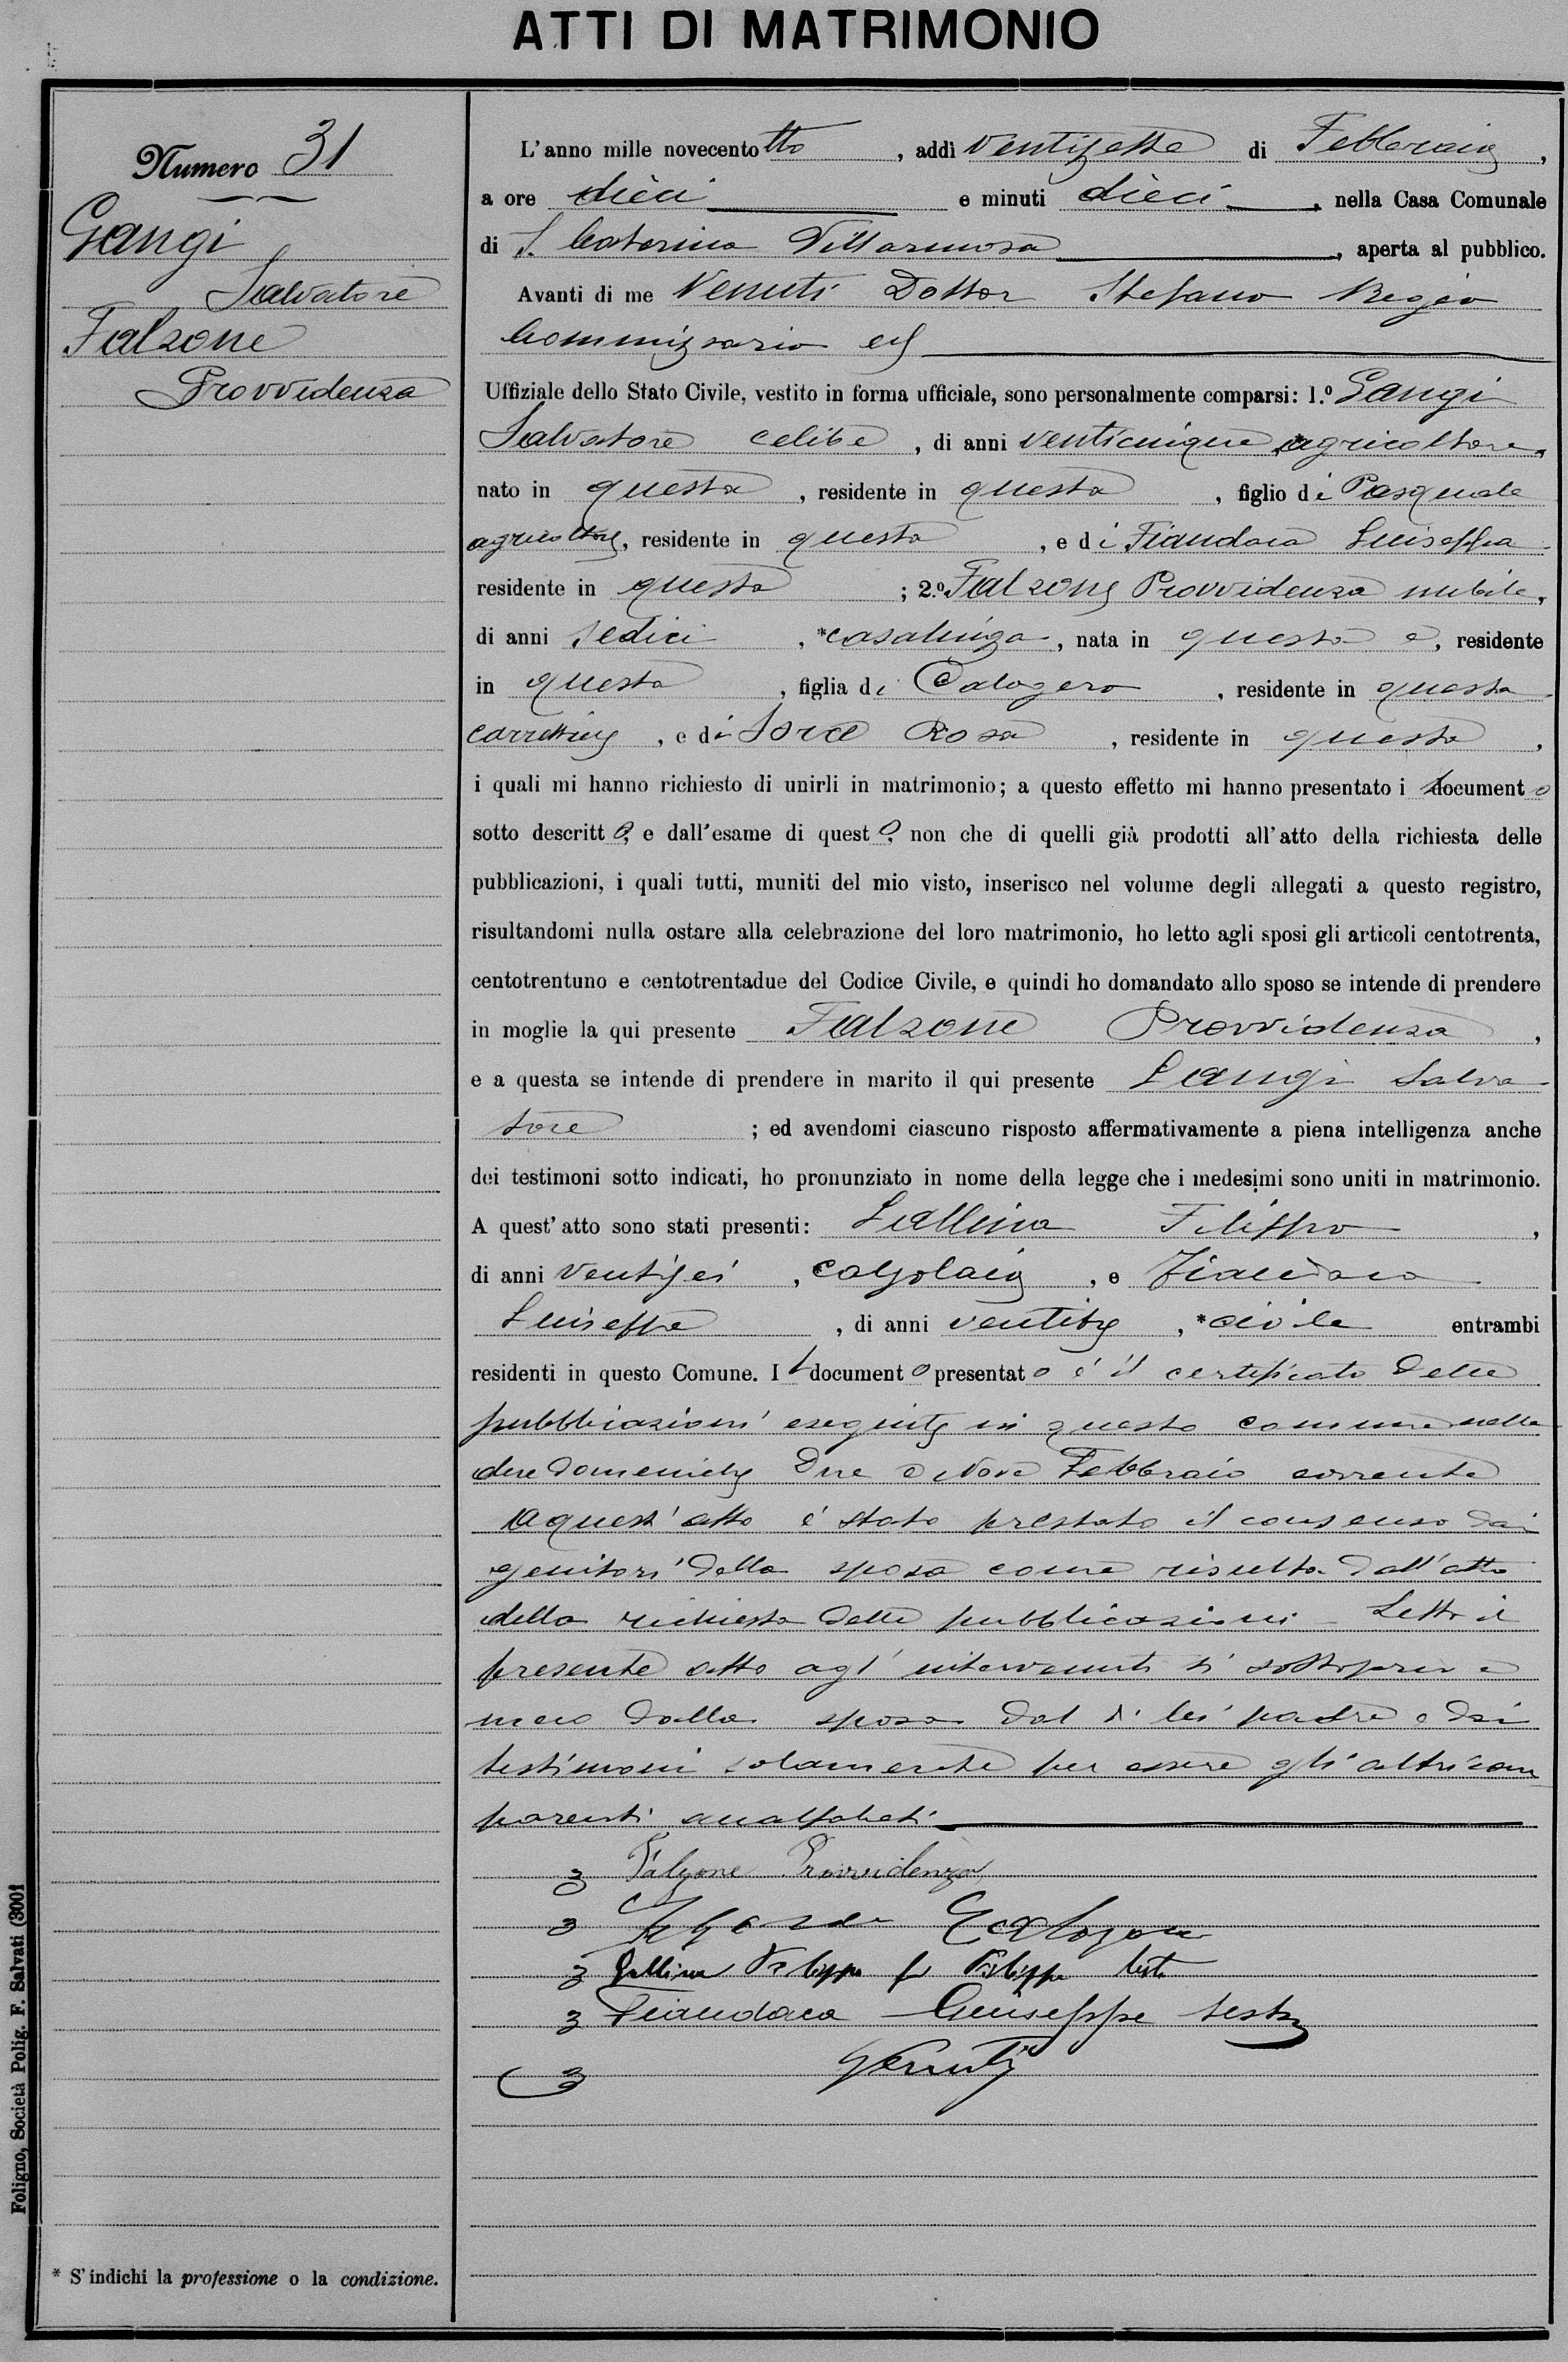 ATTI DI MATRIMONIO
Numero 31
Gangi
Salvatore
Falzone
Provvidenza
L'anno mille novecentotto, addì ventisette di Febbraio,
a ore dieci e minuti dieci, nella Casa Comunale
di S. Caterina Villarmosa, aperta al pubblico.
Avanti di me Venuti Dottor Stefano Regio
Commissario ed
Uffiziale dello Stato Civile, vestito in forma ufficiale, sono personalmente comparsi: 1.º Gangi
Salvatore celibe, di anni venticinque, *agricoltore,
nato in questa, residente in questa, figlio di Pasquale
agricoltore, residente in questa, e di Fiandaca Giuseppa
residente in questa; 2.º Falzone Provvidenza nubile,
di anni sedici, *casalinga, nata in questa e, residente
in questa, figlia di Calogero, residente in questa
carrettiere, e di Sorce Rosa, residente in questa,
i quali mi hanno richiesto di unirli in matrimonio; a questo effetto mi hanno presentato i l documento
sotto descritto, e dall'esame di questo, non che di quelli già prodotti all'atto della richiesta delle
pubblicazioni, i quali tutti, muniti del mio visto, inserisco nel volume degli allegati a questo registro,
risultandomi nulla ostare alla celebrazione del loro matrimonio, ho letto agli sposi gli articoli centotrenta,
centotrentuno e centotrentadue del Codice Civile, e quindi ho domandato allo sposo se intende di prendere
in moglie la qui presente Falzone Provvidenza,
e a questa se intende di prendere in marito il qui presente Gangi Salva
tore; ed avendomi ciascuno risposto affermativamente a piena intelligenza anche
dei testimoni sotto indicati, ho pronunziato in nome della legge che i medesimi sono uniti in matrimonio.
A quest'atto sono stati presenti: Gallina Filippo,
di anni ventisei, calzolaio, e Fiandaca
Giuseppe, di anni ventitre, *civile entrambi
residenti in questo Comune. Il documento presentato è il certificato delle
pubblicazioni eseguite in questo comune nelle
due domeniche due e nove Febbraio corrente
A quest'atto è stato prestato il consenso dai
genitori della sposa come risulta dall'atto
della richiesta delle pubblicazioni. Letto il
presente atto agl'intervenuti si sottoscrive
meco dalla sposa dal di lei padre e dai
testimoni solamente per essere gli altri com
parenti analfabeti
Falzone Provvidenza
Falzone Calogero
Gallina Filippo fu Filippo teste
Fiandaca Giuseppe teste
Venuti
* S'indichi la professione o la condizione.
Foligno, Società Polig. F. Salvati (3001